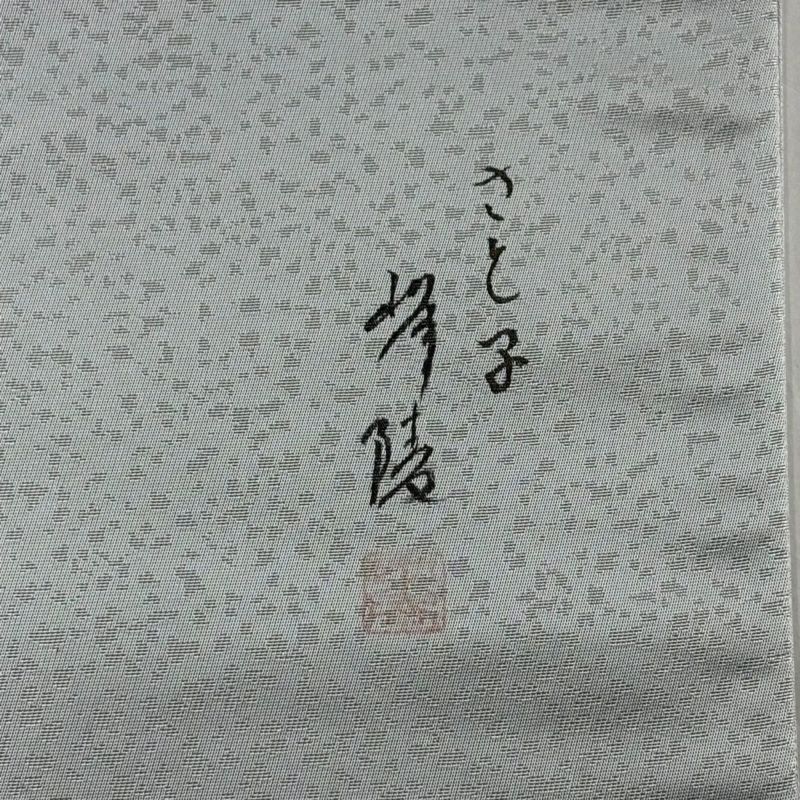 さと子
峰陵